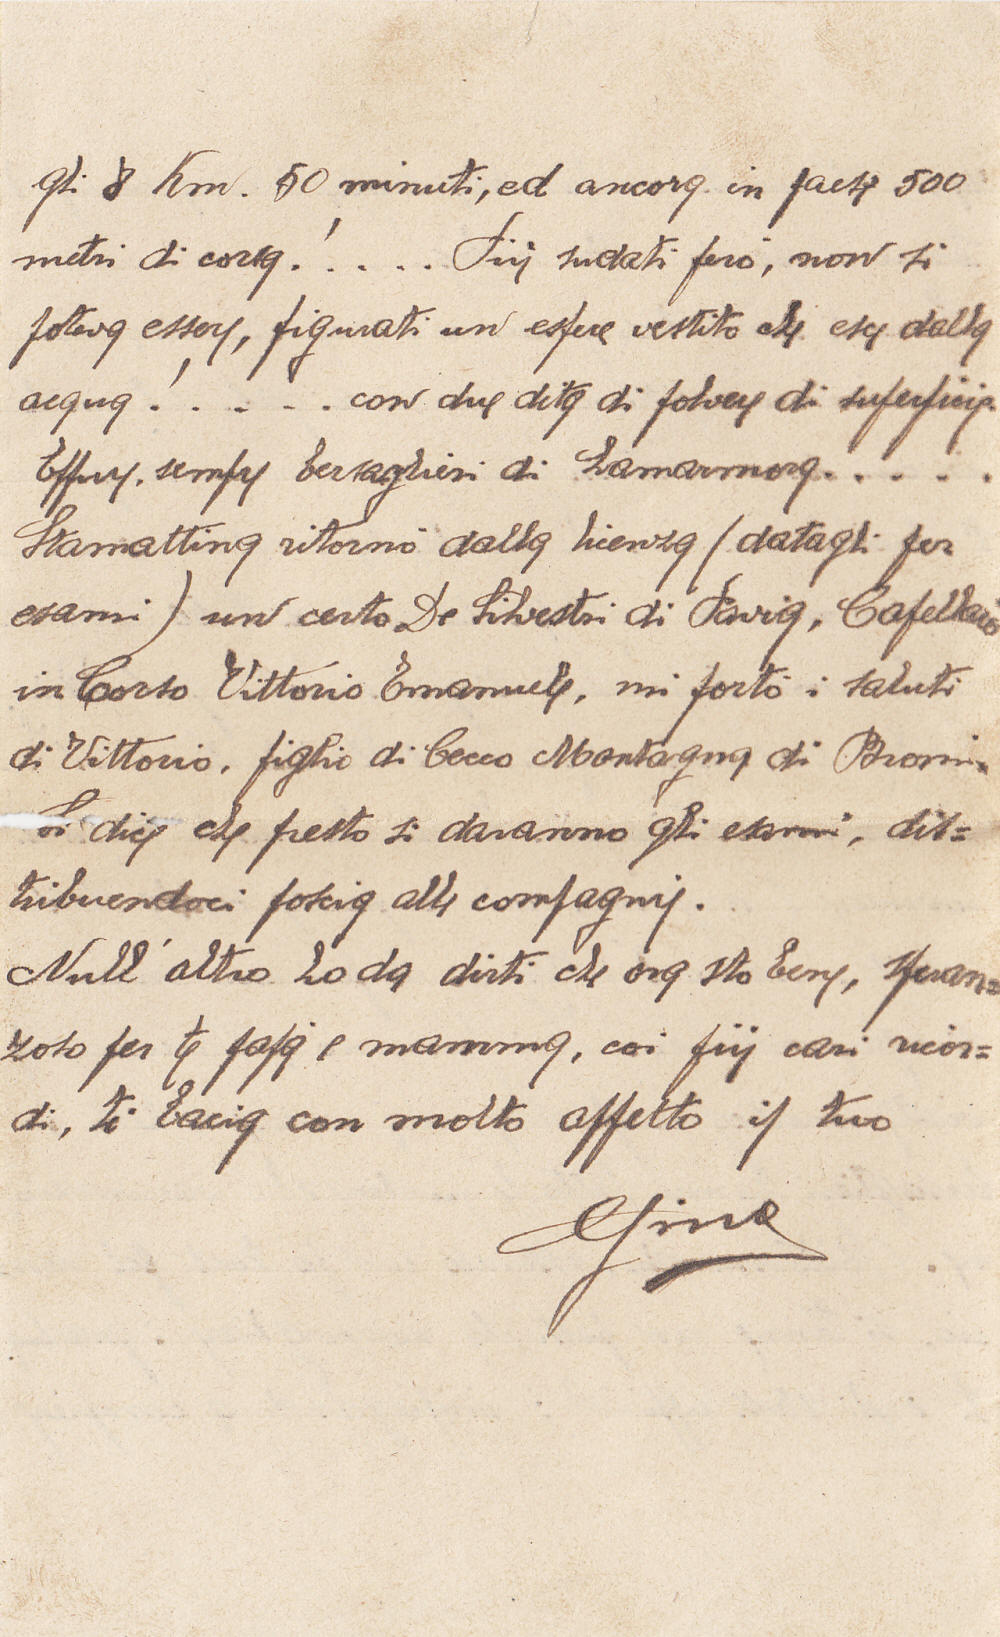 gli 8 Km. 50 minuti, ed ancora in facti 500
metri di corsa! . . . . Più sudati però, non si
poteva essere, figurati un essere vestito che esce dalla
acqua! . . . . . con due dita di polvere di superficie.
Eppure, sempre bersaglieri di Lamarmora. . . . .
Stamattina ritornò dalla licenza (datagli per
esami) un certo De Silvestri di Pavia, Cappellaio
in Corso Vittorio Emanuele, mi portò i saluti
di Vittorio, figlio di Cecco Montagna di Broni.
Si dice che presto si daranno gli esami, dis=
tribuendoci poscia alle compagnie.
Null'altro ho da dirti che ora sto bene, speran=
zoso per te papà e mamma, coi più cari ricor=
di, ti bacia con molto affetto il tuo
Gino